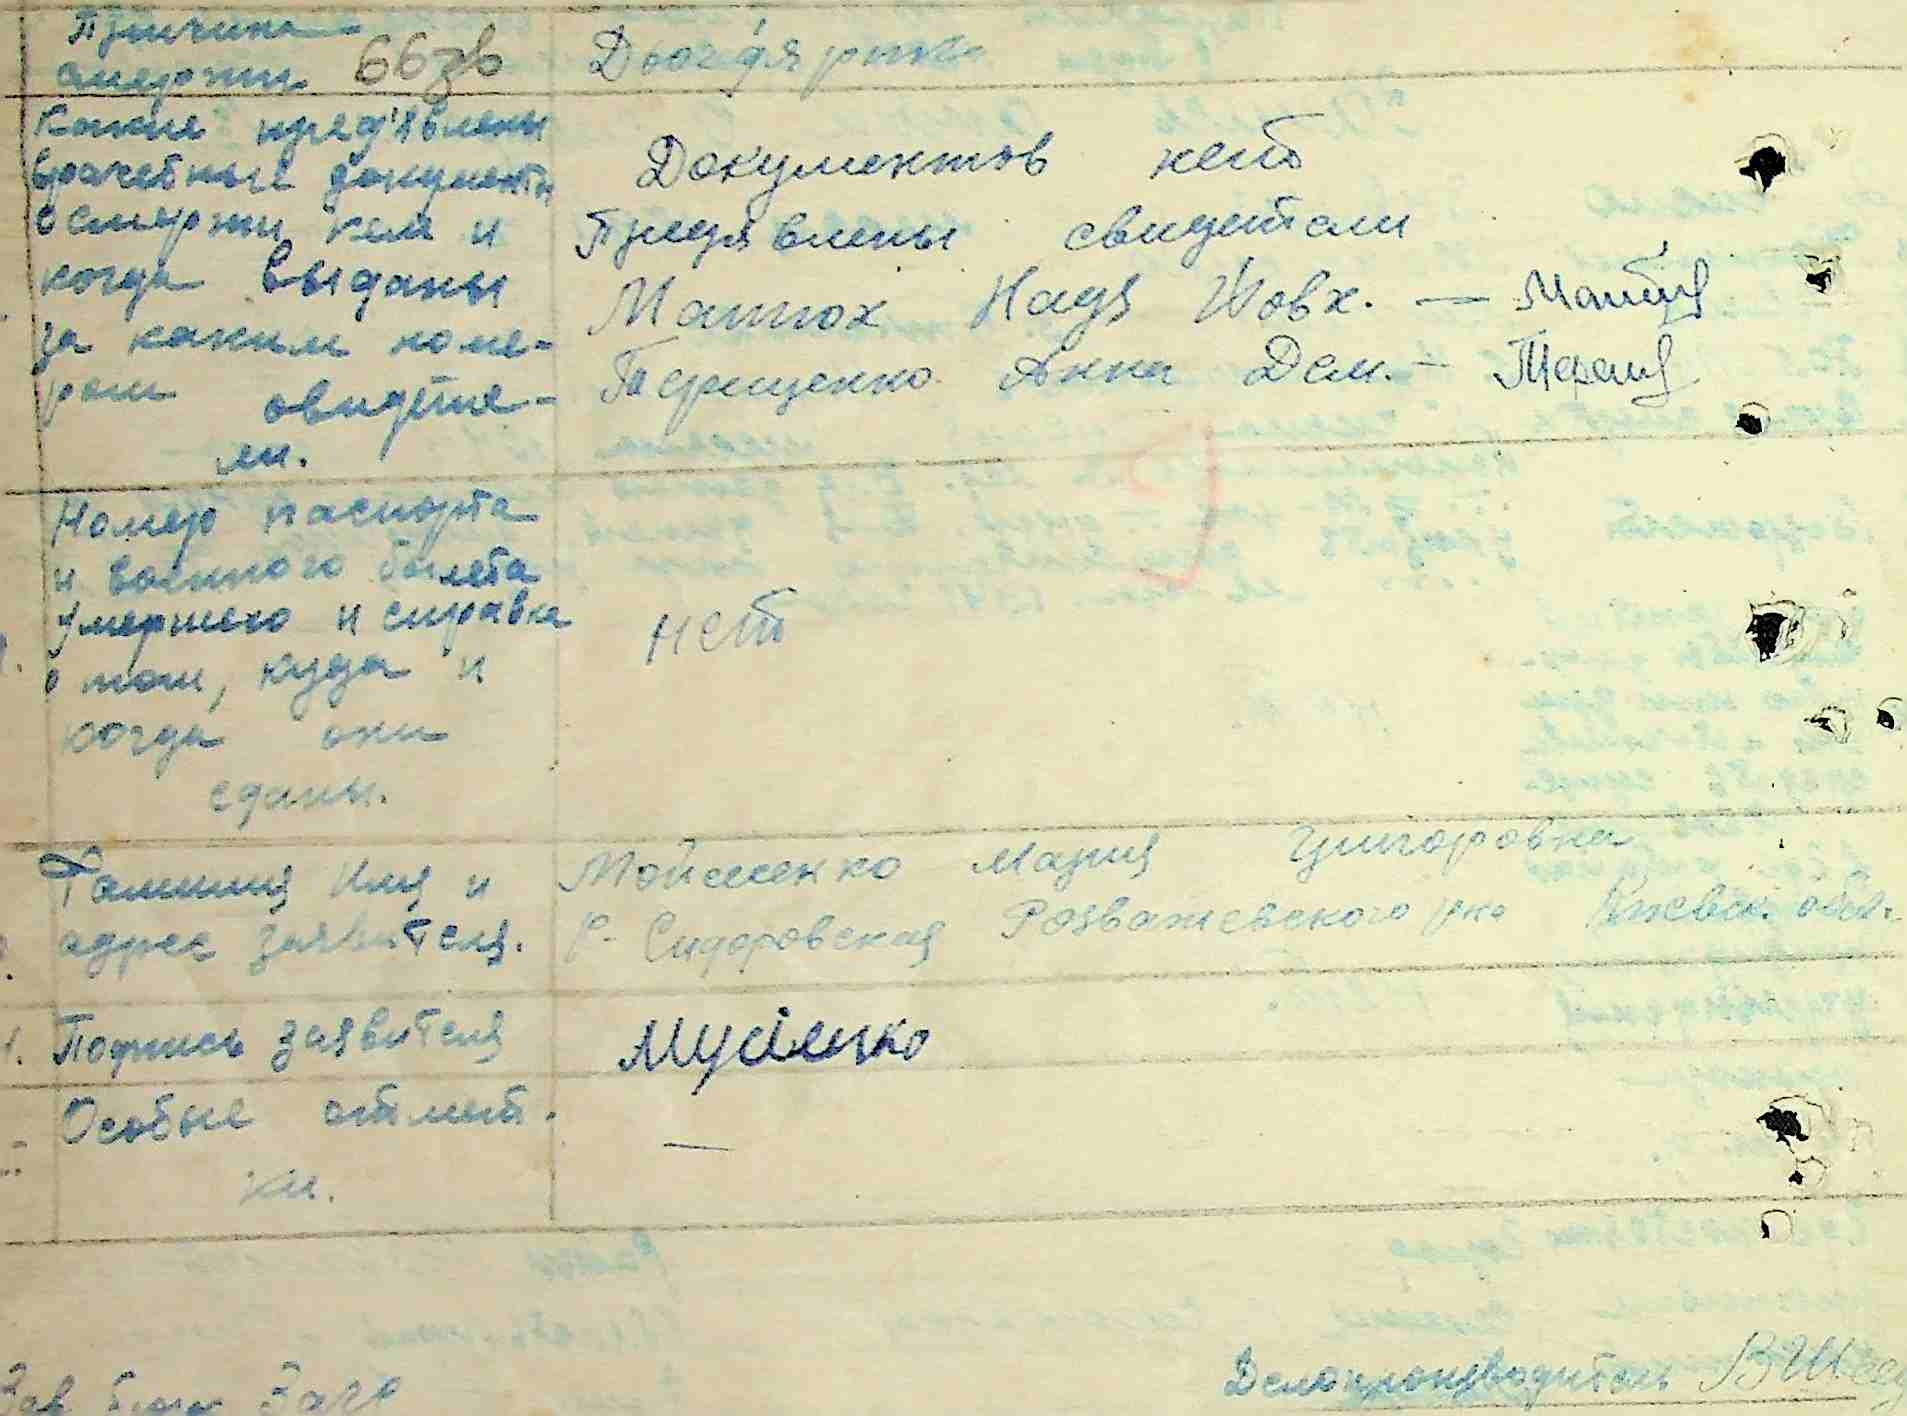 Причина
смерти 66зв
Какие пред'явлены
врачебные документы
о смерти кем и
когда выданы
за каким номе-
ром свидете-
ли.
Документов нет
Предявлены свидетели
Матюх Надя Иовх. —
Терещенко Анна Дем. —
Номер паспорта
и военного билета
умершего и справка
о том, куда и
когда они
сданы.
нет
Фамилия Имя и
адрес заявителя.
Мойсеенко Мария Григоровна
Сидоровская Розважевского р-на Киевск. обл.
Подпись заявителя
Мусіенко
Особые отмет-
ки.
—
Зав. бюро Загс
Делопроизводитель